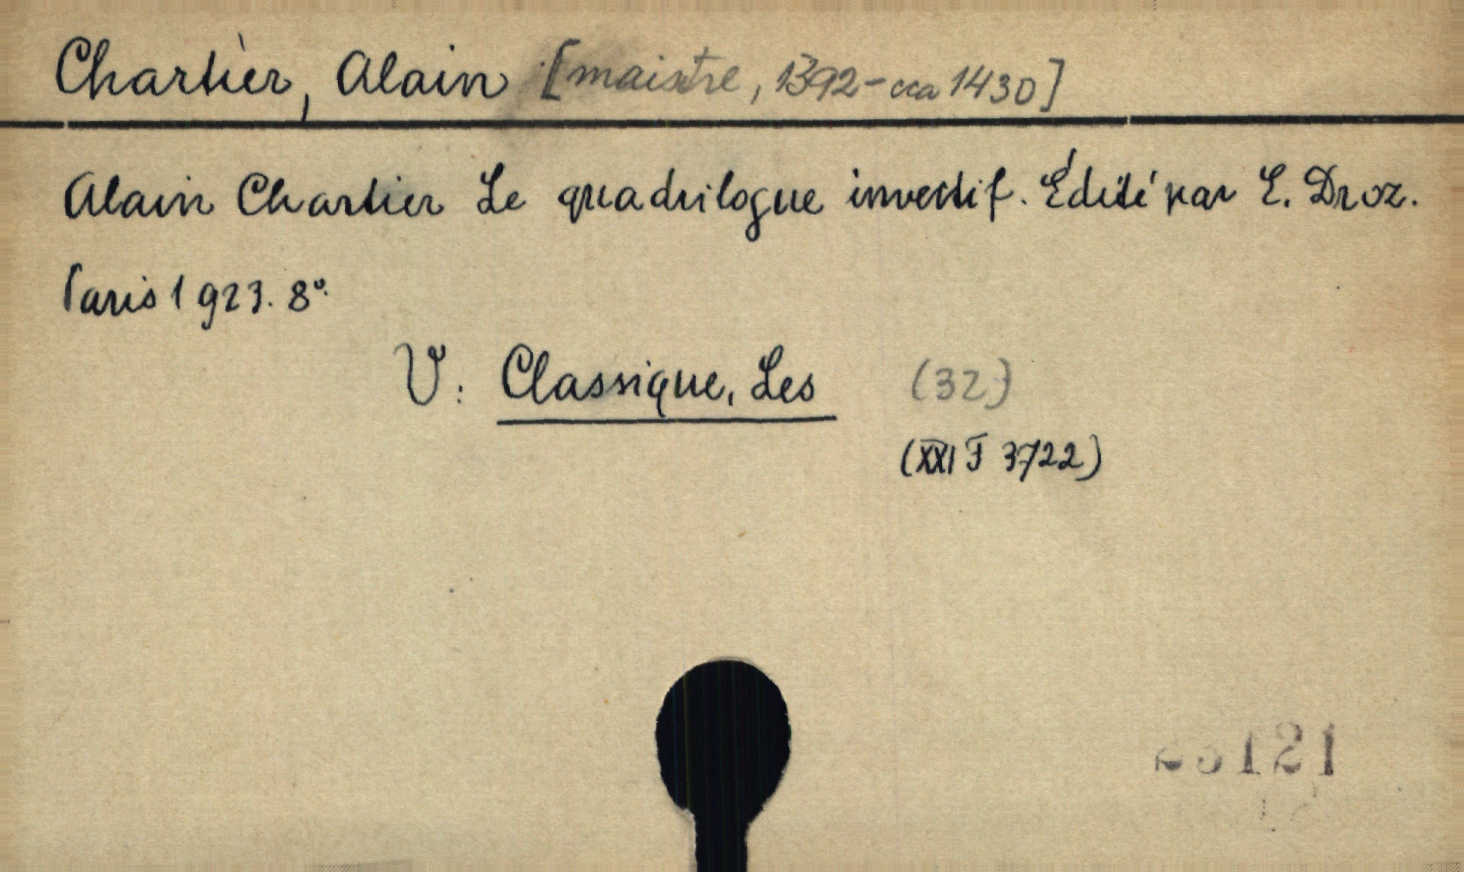 Chartier, Alain [maistre, 1392-cca 1430]
Alain Chartier Le quadrilogue invectif. Édité par E. Droz.
Paris 1923. 8º.
V: Classique, Les (32)
(XXI F 3722)